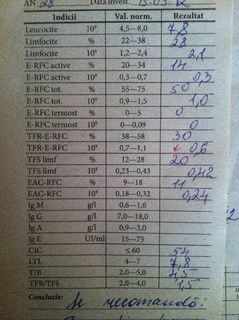 AN 28 Data invest. 15.03.12
Indicii Val. norm. Rezultat
Leucocite 10⁹ 4,5—8,0 7,8
Limfocite % 22—38 28
Limfocite 10⁹ 1,2—2,4 2,1
E-RFC active % 20—34 14
E-RFC active 10⁹ 0,3—0,7 0,3
E-RFC tot. % 55—75 50
E-RFC tot. 10⁹ 0,9—1,5 1,0
E-RFC termost % 0—5 0
E-RFC termost 10⁹ 0—0,09 0
TFR-E-RFC % 38—58 30
TFR-E-RFC 10⁹ 0,7—1,1 0,6
TFS limf % 12—28 20
TFS limf 10⁹ 0,23—0,43 0,42
EAC-RFC % 9—18 11
EAC-RFC 10⁹ 0,18—0,32 0,24
Ig M g/l 0,6—1,6
Ig G g/l 7,0—18,0
Ig A g/l 0,9—3,0
Ig E UI/ml 15—75
CIC ≤ 60 54
LTL 4—7 7,8
T/B 2,0—5,0 4,5
TPR/TFS 2,0—4,0 1,5
Concluzie: Se recomandă: